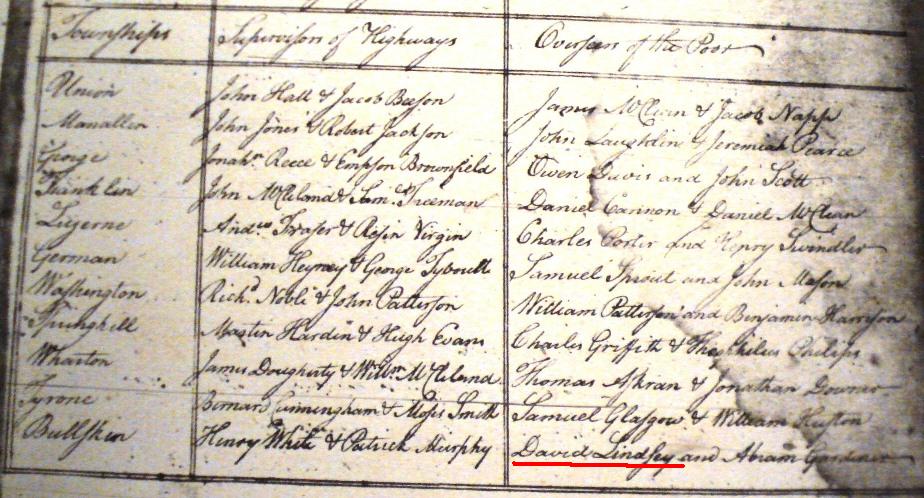 Townships Supervisors of Highways Overseers of the Poor
Union John Hall & Jacob Beeson James McClean & Jacob Knapp
Manallen John Jones & Robert Jackson John Laughlin & Jeremiah Pearce
George Jonahn Reece & Empson Brownfield Owen Davis and John Scott
Franklin John McCleland & Sam. Freeman Daniel Cannon & Daniel McClean
Luzerne Andw Frazer & Resin Virgin Charles Porter and Henry Swindler
German William Heyney & George Tyboult Samuel Sprout and John Mason
Washington Richd Noble & John Patterson William Patterson and Benjamin Harrison
Springhill Martin Hardin & Hugh Evans Charles Griffith & Theophilus Philips
Wharton James Dougherty & Willm McCleland Thomas & Jonathan Downer
Tyrone Bernard Cunningham & Moses Smith Samuel Glasgow & William Huston
Bullskin Henry White & Patrick Murphy David Lindsey and Abram Gardiner